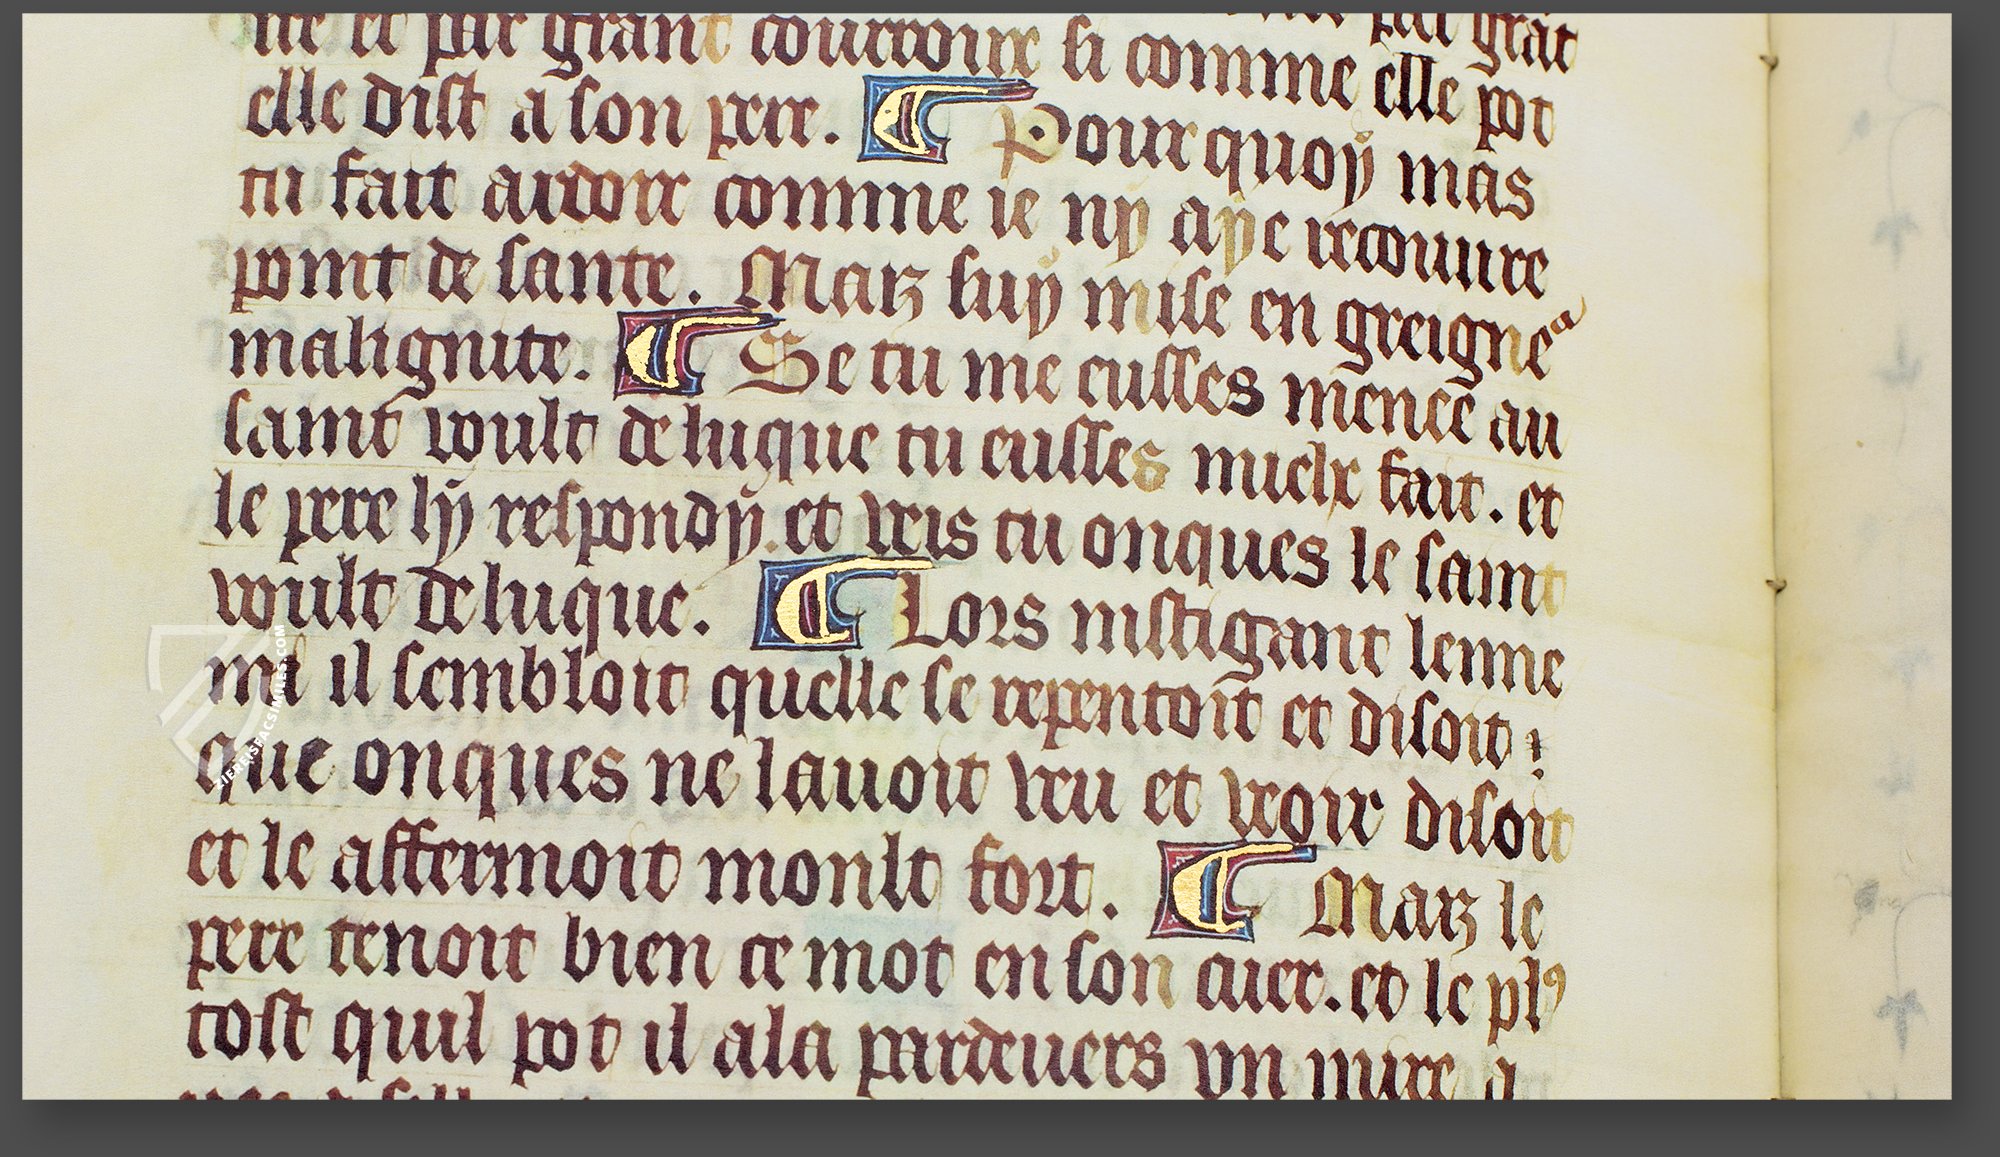 par grāt
ire et par grant courroux si comme elle pot
elle dist a son pere. ¶ Pourquoy mas
tu fait ardoir comme ie ny aye recouure
point de sante. Maiz suy mise en greigne^a
malignite. ¶ Se tu me eusses mence au
saint voult de luque tu eusses mielx fait. et
le pere ly respondy. et veis tu onques le saint
voult de luque. ¶ Lors instigant lenne
mi il sembloit quelle se repentoit et disoit ;
que onques ne lauoit veu et veoir disoit
et le affermoit moult fort. ¶ Maiz le
pere tenoit bien ce mot en son cuer. et le plꝰ
tost quil pot il ala pardeuers vn mire a
ZIEREISFACSIMILES.COM